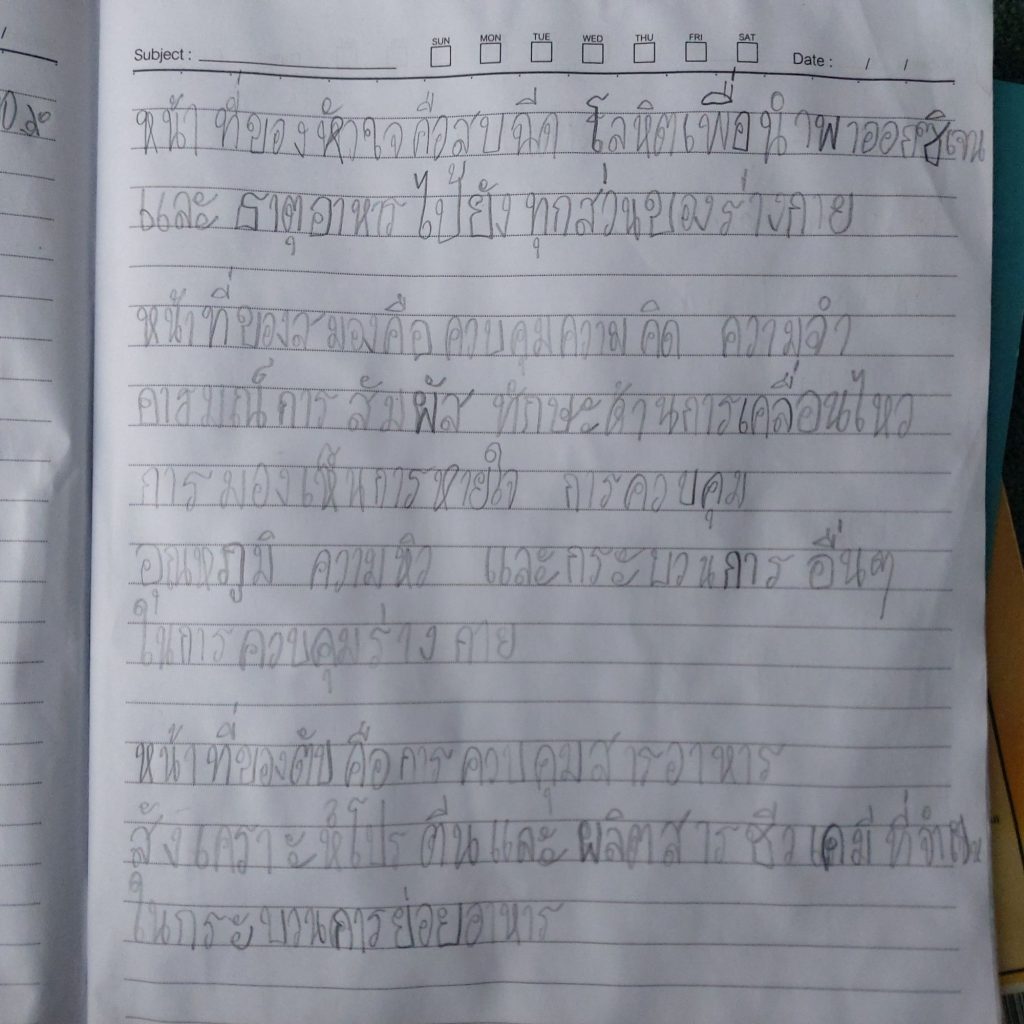 Subject : SUN MON TUE WED THU FRI SAT Date : / /
หน้าที่ของหัวใจคือสูบฉีด โลหิตเพื่อนำพาออกซิเจน
และ ธาตุอาหาร ไปยัง ทุกส่วนของร่างกาย
หน้าที่ของสมองคือ ควบคุมความคิด ความจำ
อารมณ์ การ สัมผัส ทักษะด้านการเคลื่อนไหว
การ มองเห็นการหายใจ การควบคุม
อุณหภูมิ ความหิว และกระบวนการ อื่นๆ
ในการควบคุมร่าง กาย
หน้าที่ของตับ คือการ ควบคุมสารอาหาร
สังเคราะห์โปรตีนและ ผลิตสาร ชีวเคมี ที่จำเป็น
ในกระบวนการย่อยอาหาร